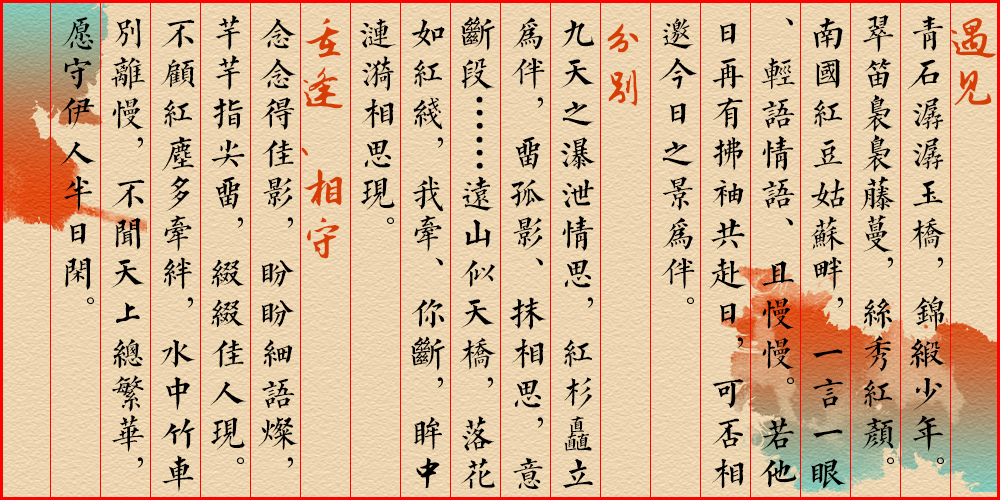 遇见
青石潺潺玉橋，錦緞少年。
翠笛裊裊藤蔓，絲秀紅顏。
南國紅豆姑蘇畔，一言一眼
、輕語情語、且慢慢。若他
日再有拂袖共赴日，可否相
邀今日之景爲伴。
分别
九天之瀑泄情思，紅杉矗立
爲伴，畱孤影、抹相思，意
斷段……遠山似天橋，落花
如紅綫，我牽、你斷，眸中
漣漪相思現。
重逢、相守
念念得佳影，盼盼細語燦，
芊芊指尖畱，綴綴佳人現。
不顧紅塵多牽絆，水中竹車
別離慢，不聞天上總繁華，
愿守伊人半日閑。